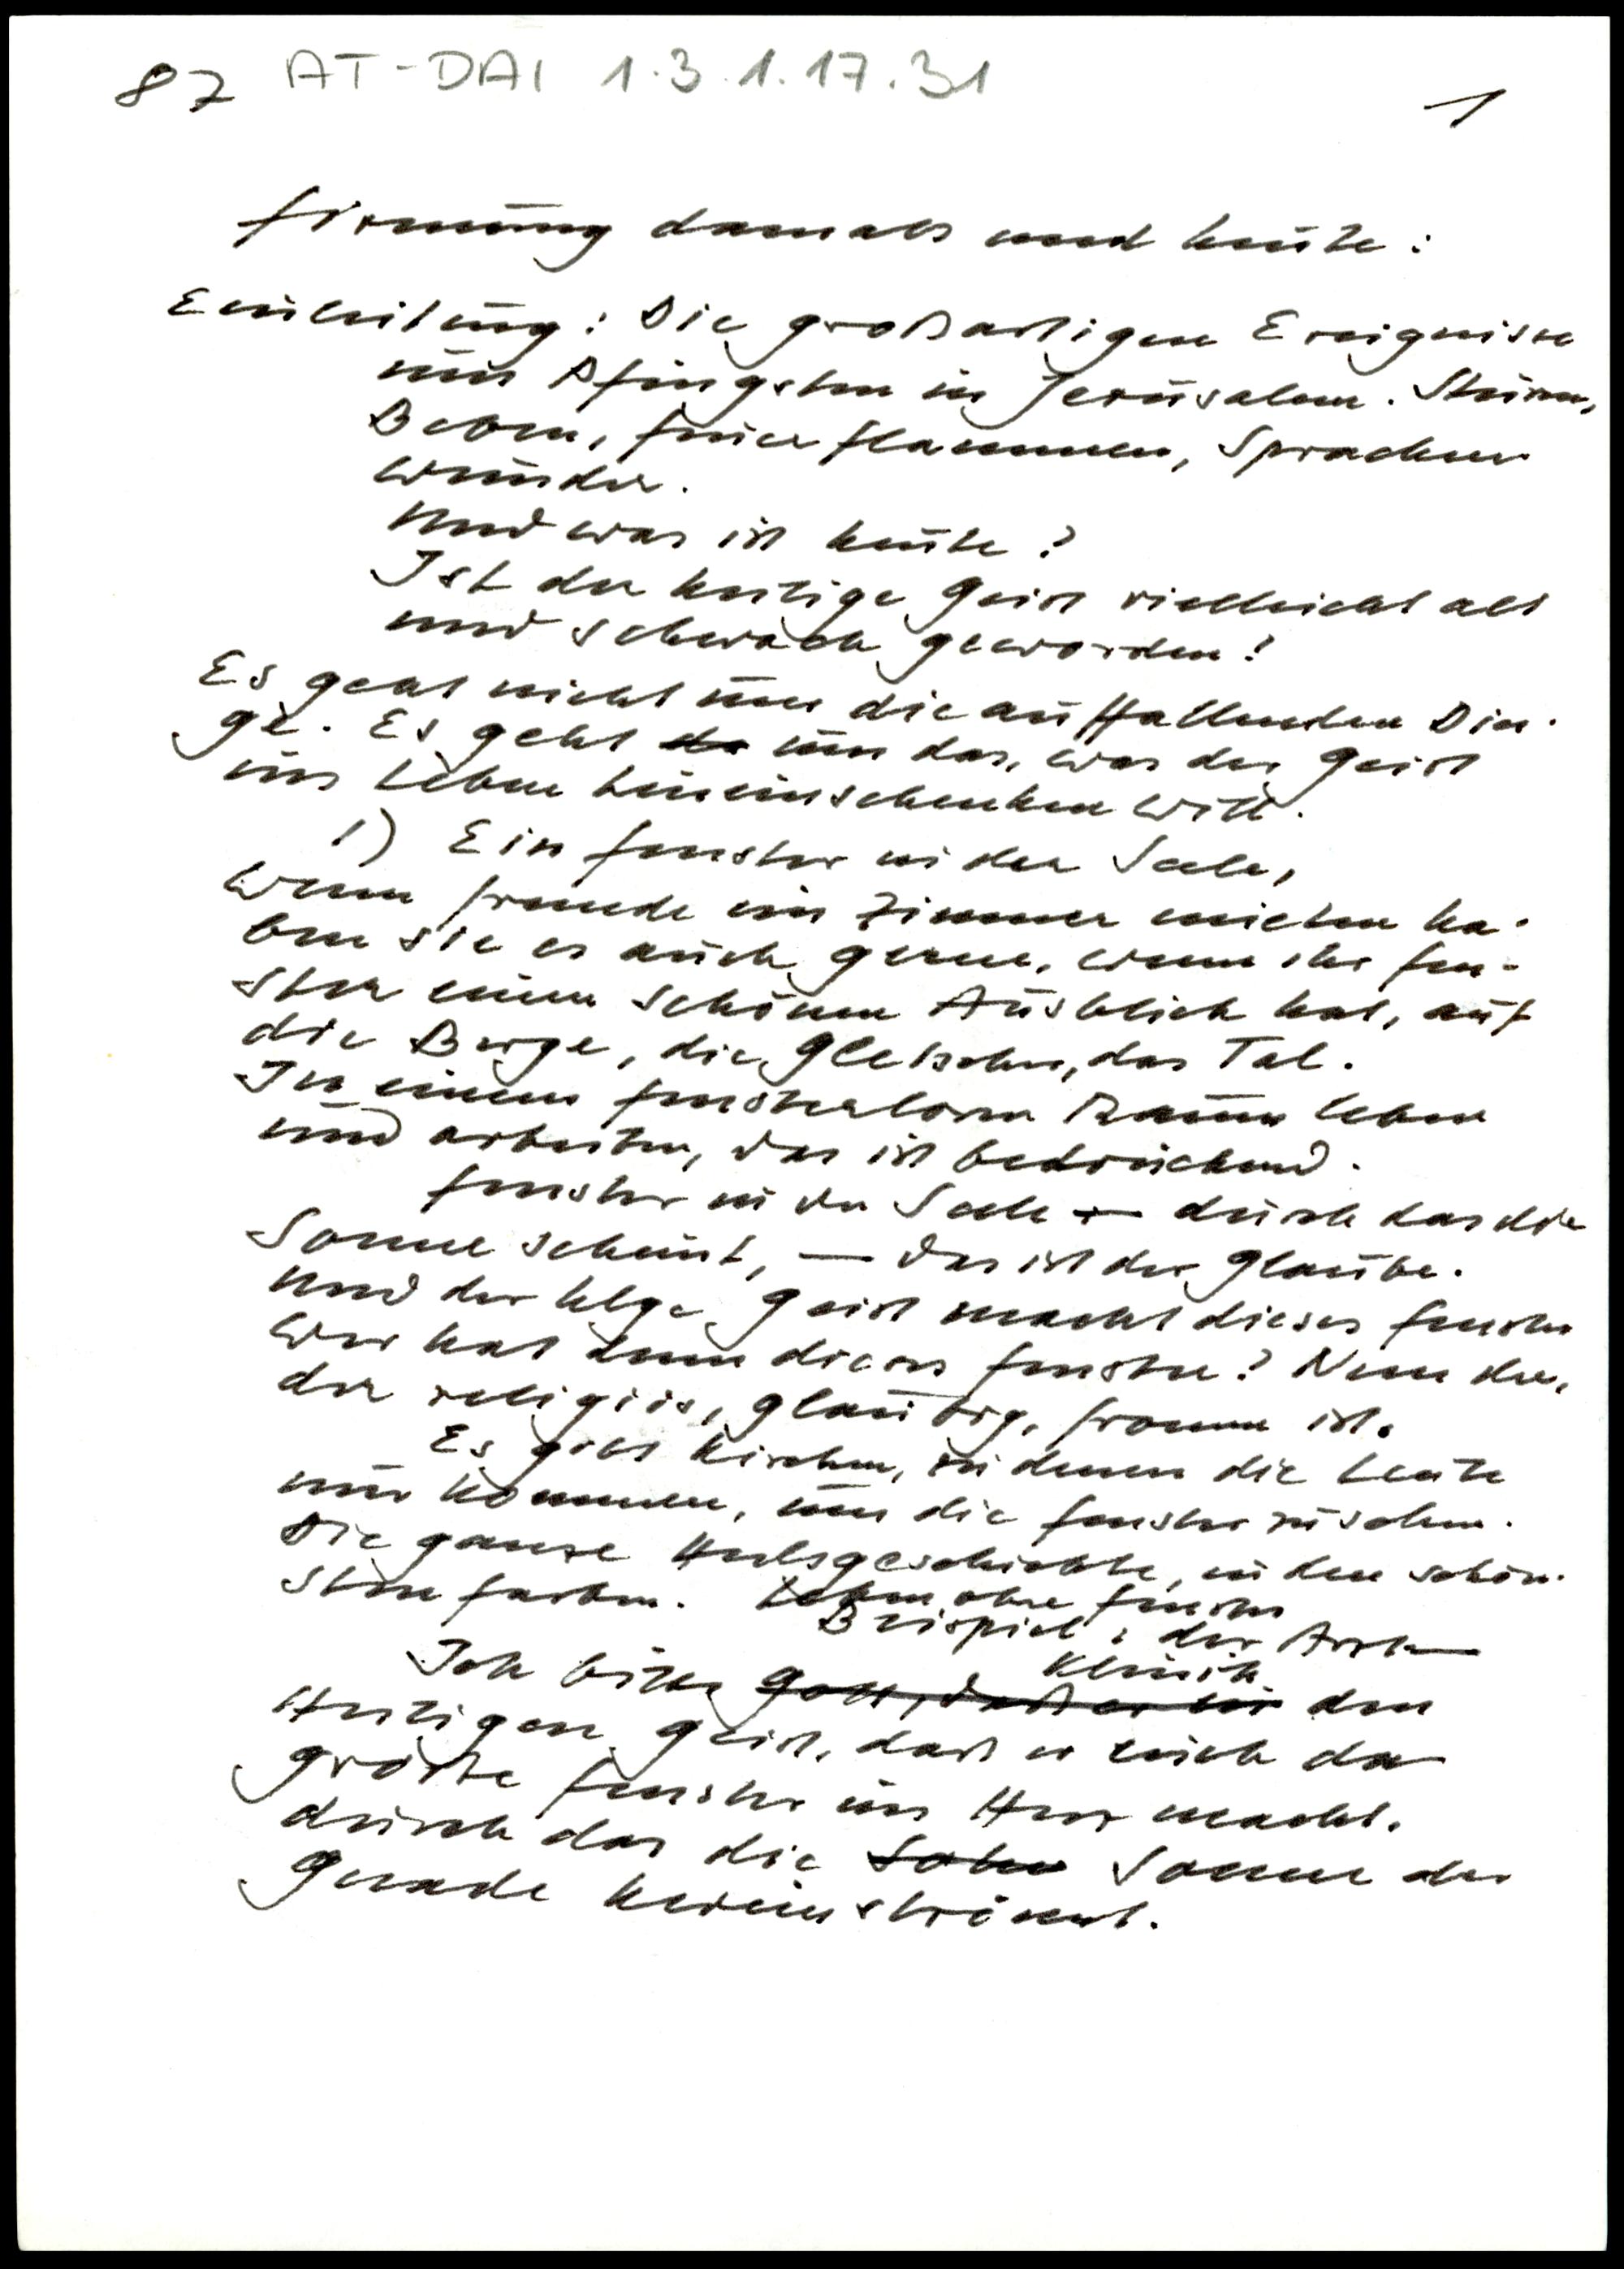 87 AT-DAI 1.3.1.17.31 1
Firmung damals und heute:
Einleitung: Die großartigen Ereignisse
um Pfingsten in Jerusalem. Sturm,
Beben, Feuerflammen, Sprachen
wunder.
Und was ist heute?
Ist der heilige Geist vielleicht alt
und schwach geworden?
Es geht nicht um die auffallenden Din-
ge. Es geht da um das, was der Geist
ins Leben hineinschenken will.
1) Ein Fenster in der Seele,
Wenn Fremde ein Zimmer mieten ha-
ben sie es auch gerne, wenn ihr Fen-
ster einen schönen Ausblick hat, auf
die Berge, die Gletscher, das Tal.
In einem fensterlosen Raum leben
und arbeiten, das ist bedrückend.
Fenster in der Seele – durch das die
Sonne scheint, – das ist der Glaube.
Und der hlge Geist macht dieses Fenster
Wer hat denn dieses Fenster? Nun der,
der religiös, gläubig, fromm ist.
Es gibt Kirchen, in denen die Leute
nur kommen, um die Fenster zu sehen.
Die ganze Heilsgeschichte, in den schön-
sten Farben. Leben ohne Fenster
Beispiel: der Arzt
Klinik
Ich bitte Gott, daß er in den
Heiligen Geist, daß er euch da
größte Fenster ins Herz macht,
durch das die Sohn Sonne der
Gnade hereinströmt.